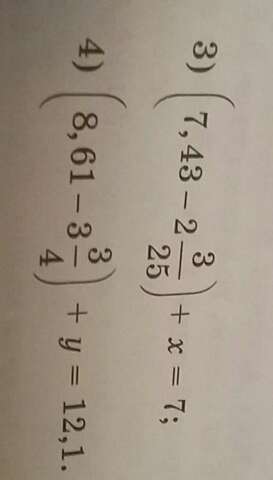 3) (7,43 − 2 3/25) + x = 7;
4) (8,61 − 3 3/4) + y = 12,1.